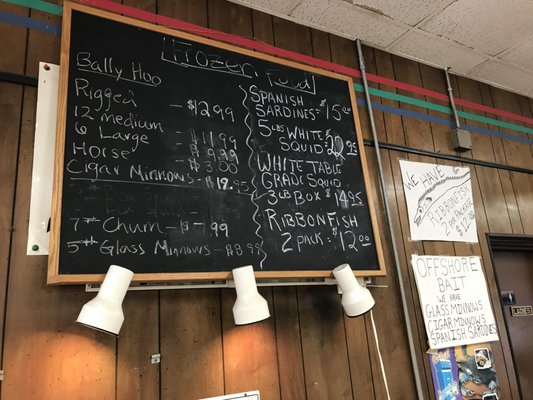 Frozen Food
Bally Hoo
Rigged - $12.99
12 medium - $11.99
6 Large - $9.99
Horse - $3.00
Cigar Minnows - $19.95
7# Chum - $7.99
5# Glass Minnows - $8.99
SPANISH
SARDINES $15.00
5 LBS WHITE
SQUID 20.95
WHITE TABLE
GRADE SQUID
3 LB BOX $14.95
RIBBON FISH
2 PACK = $12.00
WE HAVE
RIBBONFISH
2 PACK
OFFSHORE
BAIT
WE HAVE
GLASS MINNOWS
CIGAR MINNOWS
SPANISH SARDINES
WE HAV
LADIES